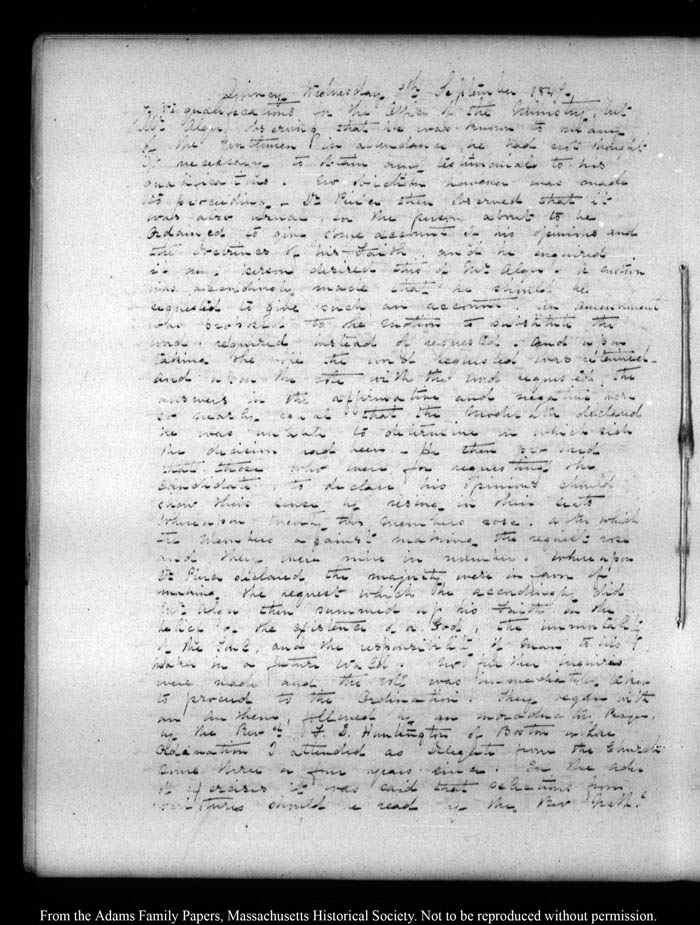 Quincy Wednesday 8th September 1847.
qualifications for the Office of the Ministry, but
Mr Alger observing that he was known to many
of the Gentlemen in attendance he had not thought
it necessary to obtain any testimonial to his
qualifications. No objection however was made
to proceeding. Dr Pierce then observed that it
was also usual, for the person about to be
Ordained to give some account of his opinions and
the doctrines of his Faith, and he enquired
if any person desired this of Mr Alger. A motion
was accordingly made that he should be
requested to give such an account. An amendment
was proposed to the motion to substitute the
word required instead of requested. And upon
taking the vote the word requested was retained.
And upon the vote with the word requested, the
answers in the affirmative and negative were
so nearly equal that the Moderator declared
he was unable to determine on which side
the decision had been. He then proposed
that those who were for requesting the
candidate, to declare his opinions should
show their sense by rising in their seats
Whereupon twenty two members rose. After which
the Members against making the request rose
and they were nine in number. Whereupon
Dr Pierce declared the majority were in favor of
making the request which he accordingly did
Mr Alger then summed up his Faith in the
belief of the existence of a God, the immortality
of the Soul, and the responsibility of man to his
Maker in a future World. No further inquiries
were made and the vote was immediately taken
to proceed to the Ordination. They began with
an Anthem, followed by an introductory Prayer,
by the Revd. F. D. Huntington of Boston whose
Ordination I attended as delegate from the Church
some three or four years since. In the order
of exercises it was said that selections from
Scriptures should be read by the Rev Nathl
From the Adams Family Papers, Massachusetts Historical Society. Not to be reproduced without permission.